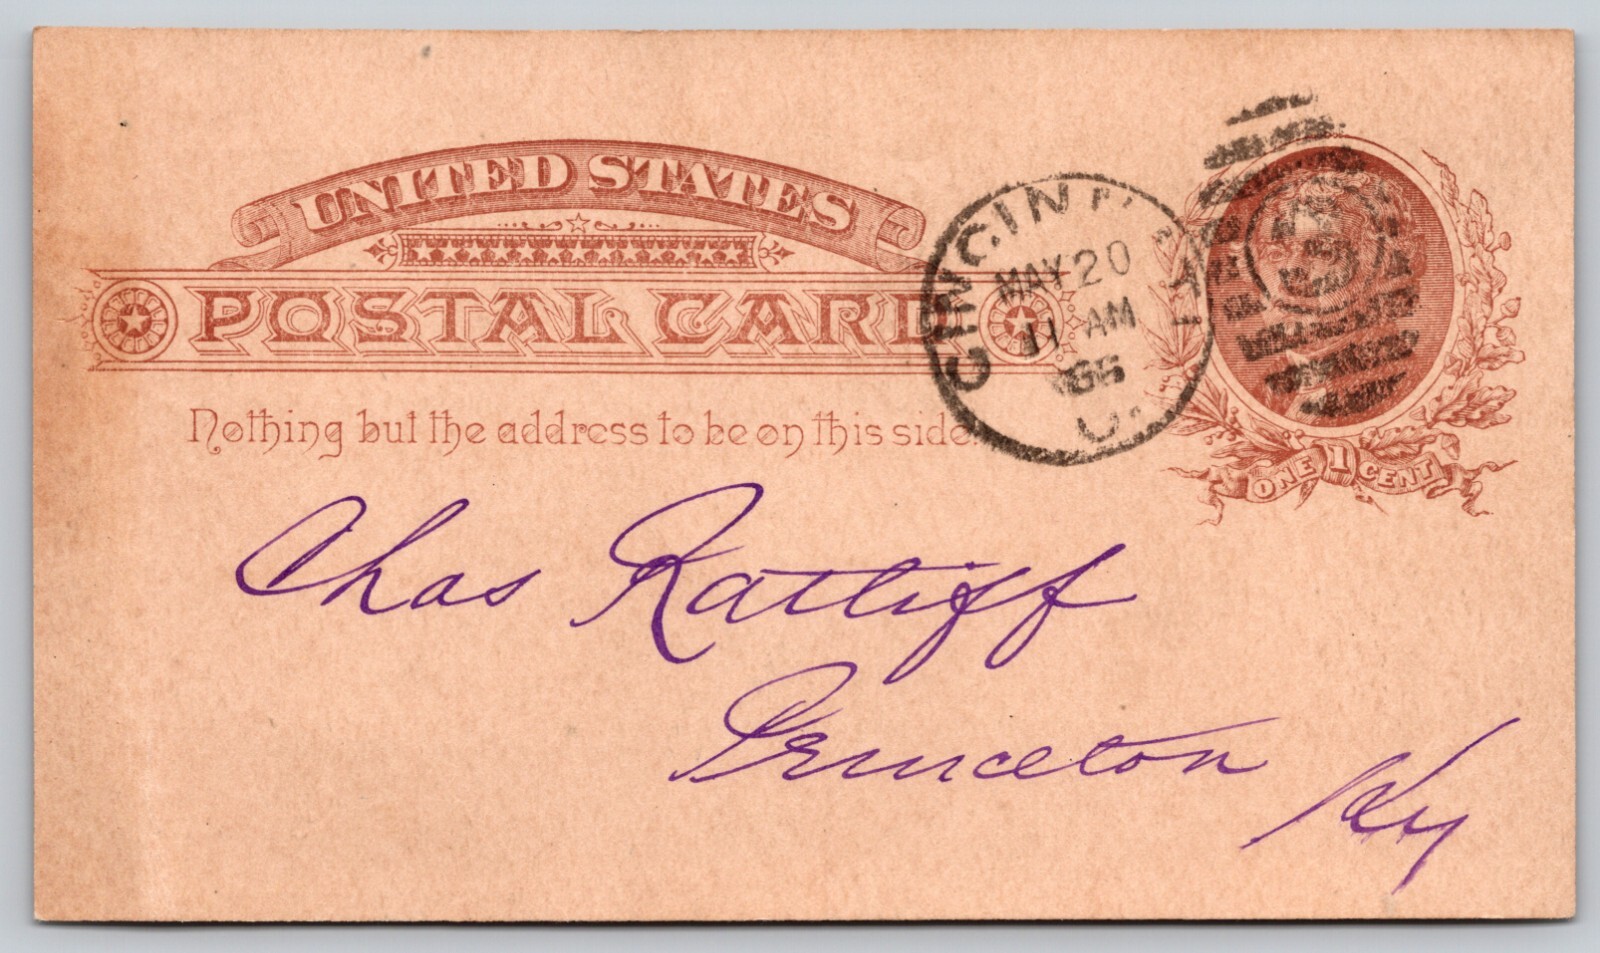 UNITED STATES
POSTAL CARD
Nothing but the address to be on this side.
CINCINNATI
MAY 20
11 AM
86
O.
5
ONE 1 CENT
Chas Ratliff
Princeton
Ky